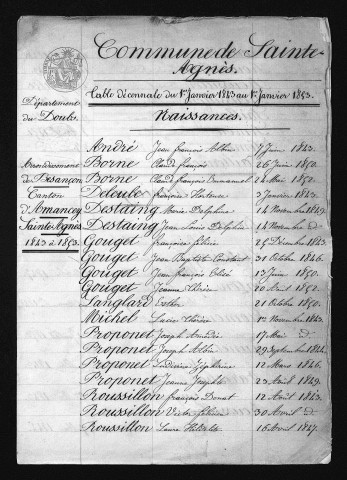 Commune de Sainte-
Agnès.
Table décennale du 1er Janvier 1843 au 1er Janvier 1853.
Naissances.
Département
du Doubs.
Arrondissement
de Besançon
Canton
d'Amancey
Sainte Agnès
1843 à 1853.
André Jean françois 7 Juin 1843.
Borne Claude françois 26 Juin 1850.
Borne Claude françois Emmanuel 24 Mai 1850.
Deloule françoise Hortense 3 Janvier 1843.
Destaing Marie Delphine 14 Novembre 1849.
Destaing Jean Louis Delphin 14 Novembre d.
Gouget françoise 25 Décembre 1843.
Gouget Jean Baptiste Constant 31 Octobre 1846.
Gouget Jean françois 13 Juin 1850.
Gouget Jeanne 20 Août 1852.
Sanglard 21 Octobre 1850.
Michel 1er Novembre 1843.
Proponet Joseph Amédée 17 Mai d.
Proponet Joseph 29 Septembre 1844.
Proponet 12 Mars 1846.
Proponet Jeanne Joseph 23 Août 1849.
Roussillon françois Donat 12 Août 1843.
Roussillon 30 Avril d.
Roussillon Laure 16 Avril 1847.